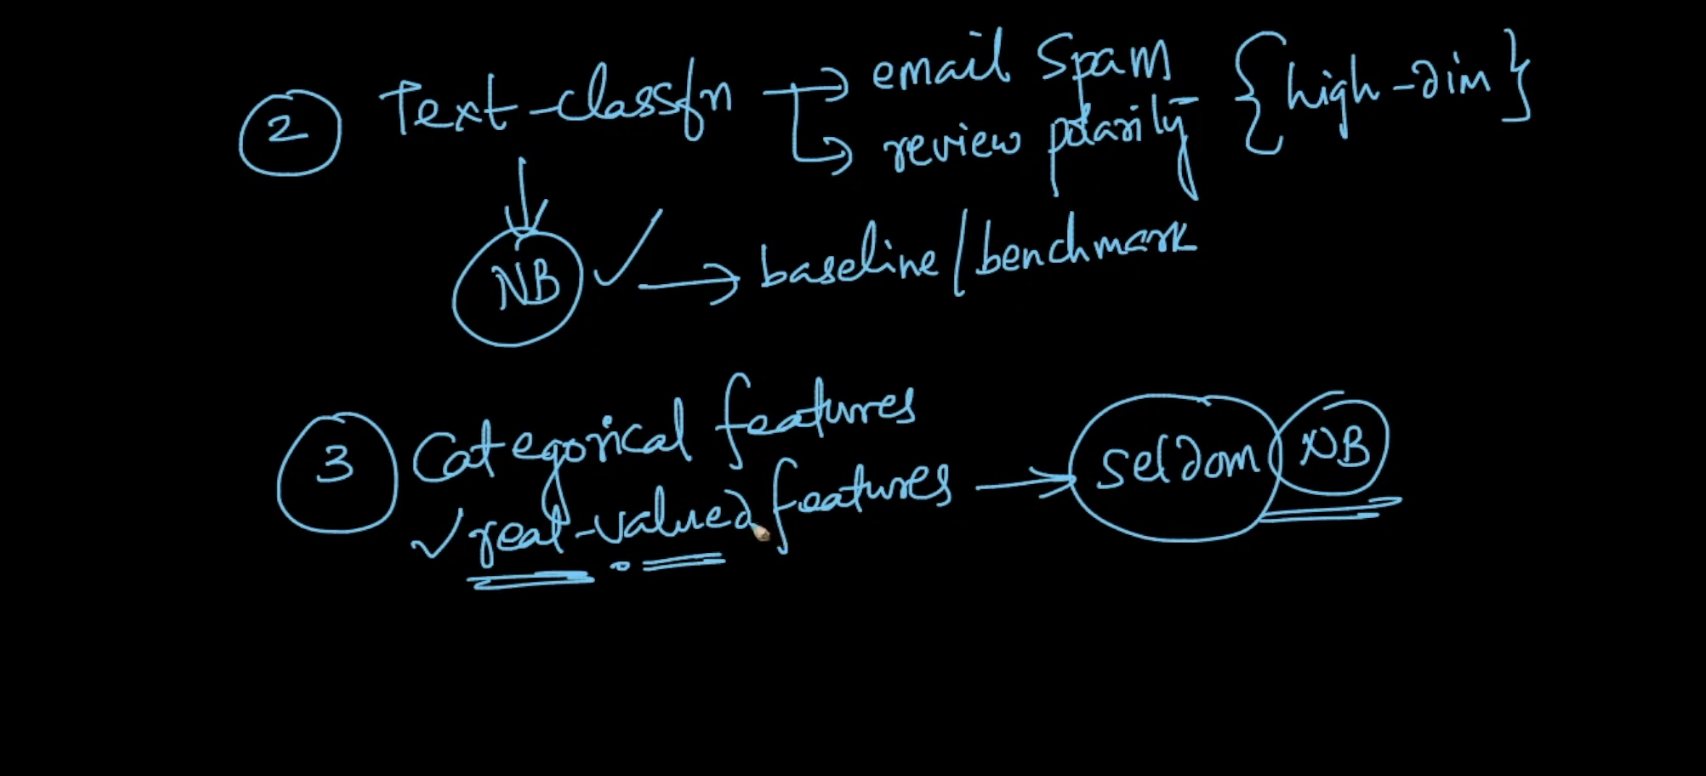 2 Text-classfn → email spam {high-dim}
→ review polarity
NB ✓ → baseline/benchmark
3 Categorical features
✓ real-valued features → seldom NB